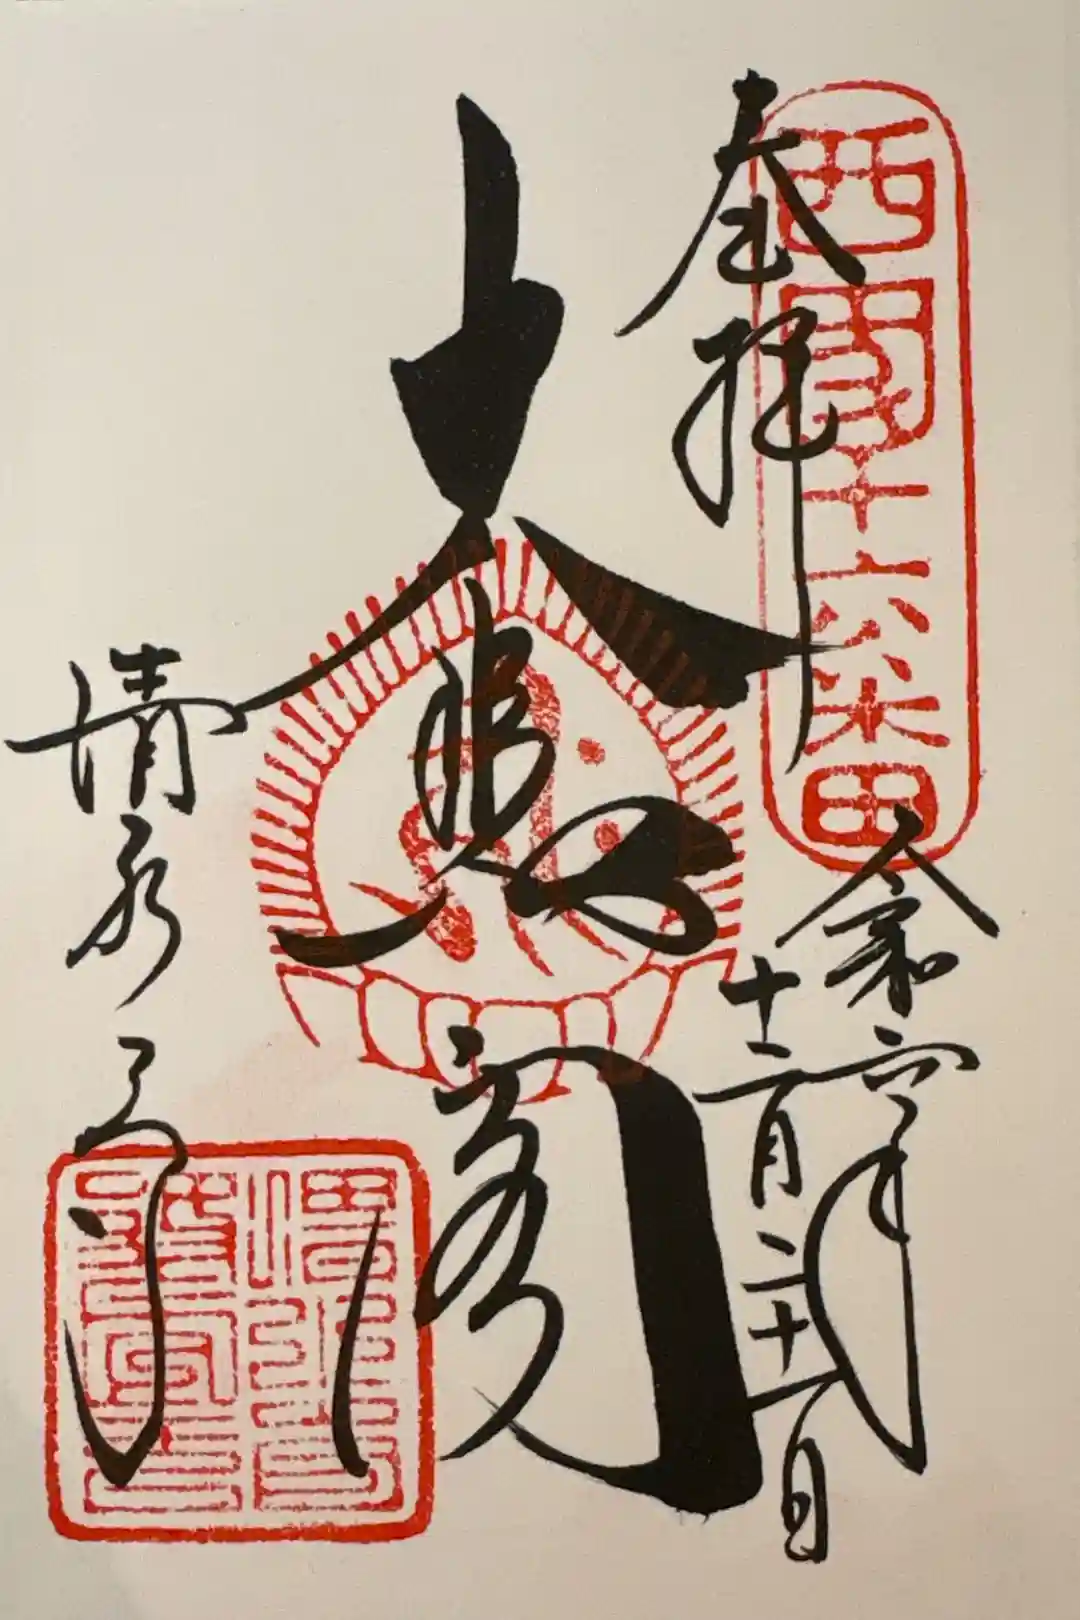 西國十六番
奉拝
令和六年
十二月二十一日
大悲閣
清水寺